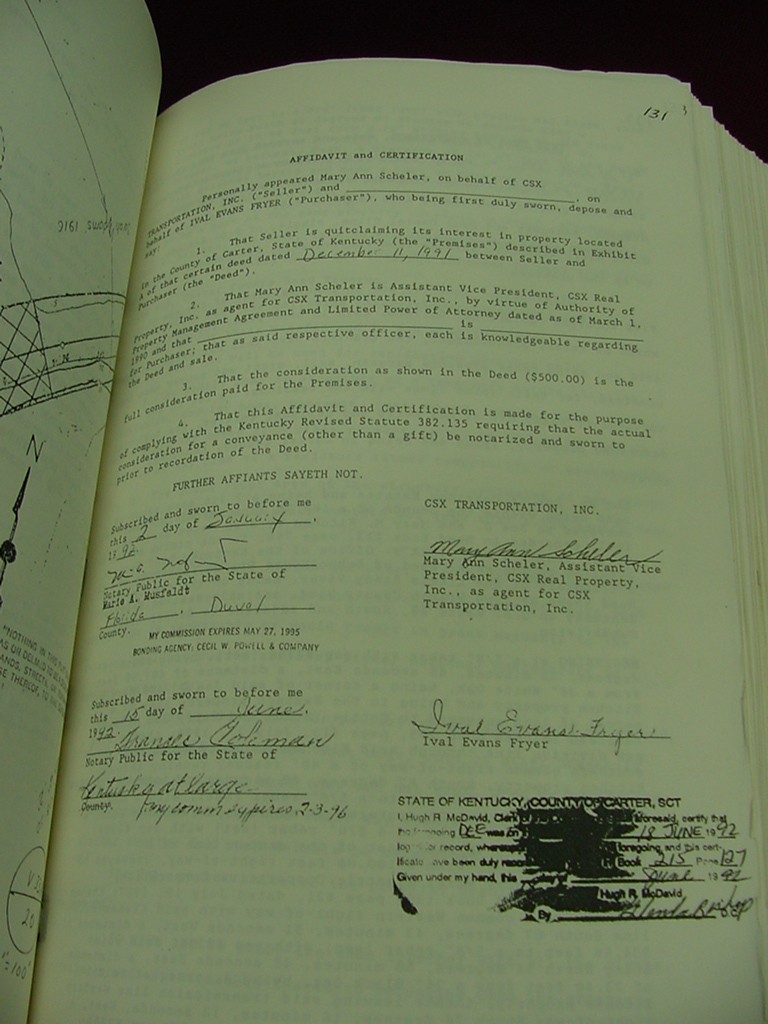 131
AFFIDAVIT and CERTIFICATION
Personally appeared Mary Ann Scheler, on behalf of CSX
TRANSPORTATION, INC. ("Seller") and , on
behalf of IVAL EVANS FRYER ("Purchaser"), who being first duly sworn, depose and
say:
1. That Seller is quitclaiming its interest in property located
in the County of Carter, State of Kentucky (the "Premises") described in Exhibit
A of that certain deed dated December 11, 1991 between Seller and
Purchaser (the "Deed").
2. That Mary Ann Scheler is Assistant Vice President, CSX Real
Property, Inc. as agent for CSX Transportation, Inc., by virtue of Authority of
Property Management Agreement and Limited Power of Attorney dated as of March 1,
1990 and that is
for Purchaser; that as said respective officer, each is knowledgeable regarding
the Deed and sale.
3. That the consideration as shown in the Deed ($500.00) is the
full consideration paid for the Premises.
4. That this Affidavit and Certification is made for the purpose
of complying with the Kentucky Revised Statute 382.135 requiring that the actual
consideration for a conveyance (other than a gift) be notarized and sworn to
prior to recordation of the Deed.
FURTHER AFFIANTS SAYETH NOT.
Subscribed and sworn to before me
this 2 day of January,
1992.
Notary Public for the State of
Marie A. Musfeldt
Florida, Duval
County.
MY COMMISSION EXPIRES MAY 27, 1995
BONDING AGENCY: CECIL W. POWELL & COMPANY
CSX TRANSPORTATION, INC.
Mary Ann Scheler
Mary Ann Scheler, Assistant Vice
President, CSX Real Property,
Inc., as agent for CSX
Transportation, Inc.
Subscribed and sworn to before me
this 15 day of June,
1992.
Frances Coleman
Notary Public for the State of
Kentucky at large
County. my comm expires 2-3-96
Ival Evans Fryer
Ival Evans Fryer
STATE OF KENTUCKY, COUNTY OF CARTER, SCT
I, Hugh R. McDavid, Clerk aforesaid, certify that
DEE was on 18 JUNE 1992
record, foregoing and this cert-
ificate have been duly Book 215 Page 127
Given under my hand, this June 1992
Hugh R. McDavid
By
N
N
"NOTHING IN THIS
20
1"=100'